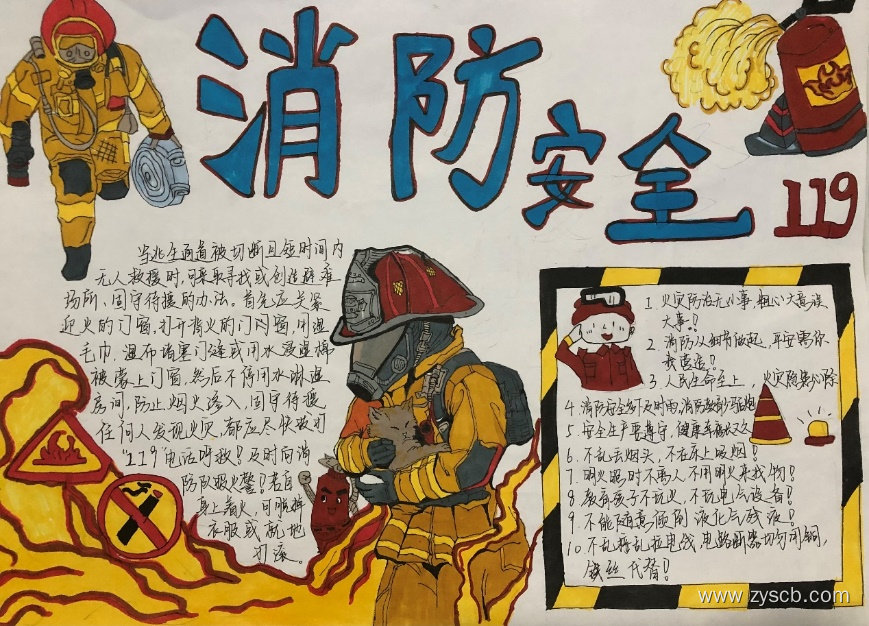 消防安全
119
当逃生通道被切断且短时间内
无人救援时,可采取寻找或创造避难
场所、固守待援的办法。首先应关紧
迎火的门窗,打开背火的门窗,用湿
毛巾、湿布堵塞门缝或用水浸湿棉
被蒙上门窗,然后不停用水淋湿
房间,防止烟火渗入,固守待援
任何人发现火灾,都应尽快拨打
"119"电话呼救!及时向消
防队报火警!若自
身上着火,可脱掉
衣服或就地
打滚。
1. 火灾防治无小事,粗心大意误
大事!
2. 消防从细节做起,平安需你
我
3. 人民生命至上,火灾隐患必除
4. 消防安全
5 安全生产要遵守,健康幸福
6. 不乱丢烟头,不在床上吸烟!
7 明火照时不离人 不用明火来找物!
8 教育孩子不玩火,不玩电气设备!
9 不能随意倾倒 液化气残液!
10. 不乱接乱拉电线 电路断器切勿用铜,
铁丝代替!
www.zyscb.com